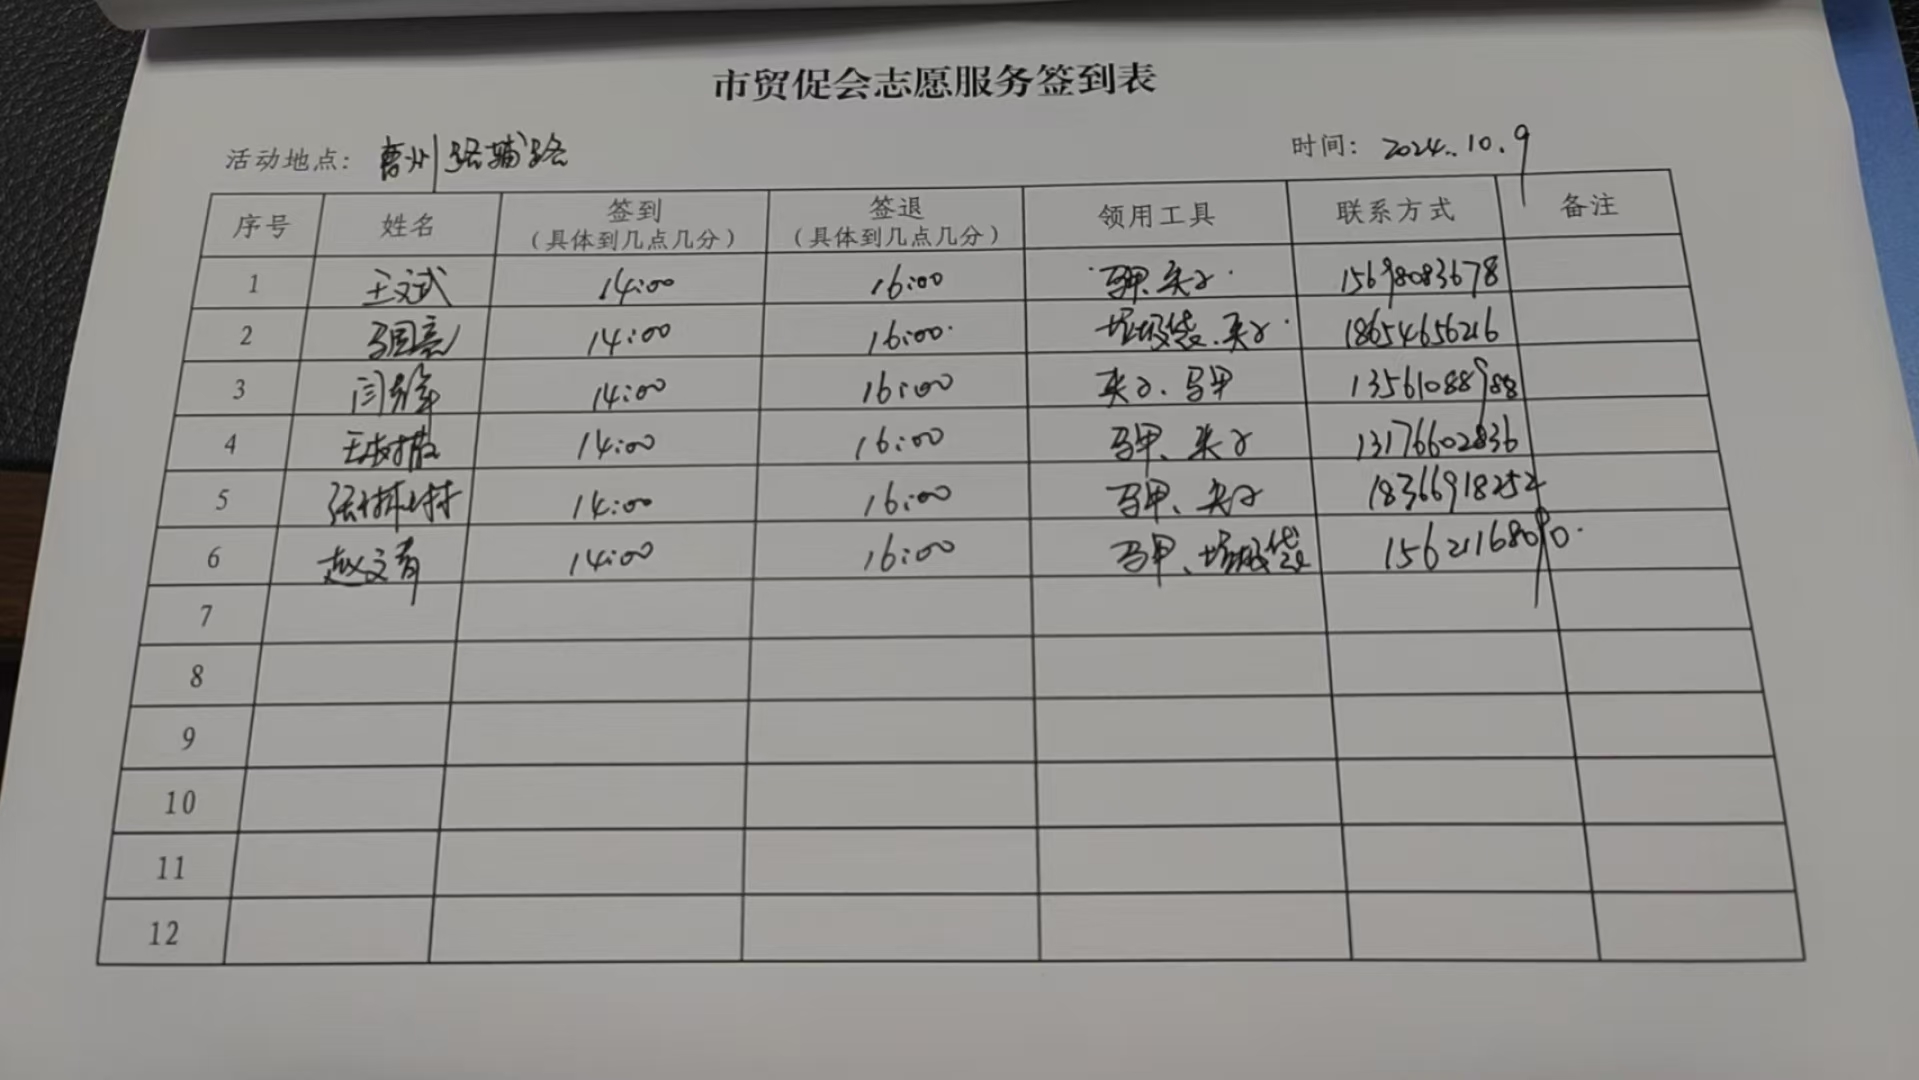 市贸促会志愿服务签到表
活动地点: 曹州路辅路 时间: 2024.10.9
序号 姓名 签到（具体到几点几分） 签退（具体到几点几分） 领用工具 联系方式 备注
1 王文斌 14:00 16:00 马甲、夹子 15698083678
2 14:00 16:00 垃圾袋、夹子 18654656216
3 14:00 16:00 夹子、马甲 13561088988
4 14:00 16:00 马甲、夹子 13176602836
5 14:00 16:00 马甲、夹子 18366918252
6 赵文青 14:00 16:00 马甲、垃圾袋 15621168090
7
8
9
10
11
12